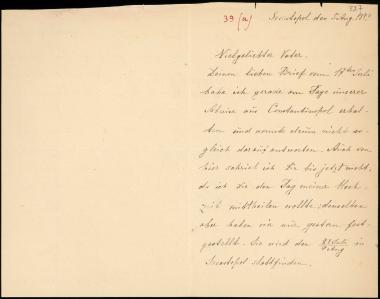 39 (a)
Sewastopol den 5 Aug.
Vielgeliebter Vater.
Deinen lieben Brief vom 18ten Juli
habe ich gerade am Tage unserer
Abreise aus Constantinopel erhal-
ten und konnte drum nicht so-
gleich darauf antworten. Auch von
hier schrieb ich Dir bis jetzt nicht,
da ich Dir den Tag meiner Hoch-
zeit mittheilen wollte; denselben
aber haben wir nur gestern fest-
gestellt. Sie wird den
Sewastopol stattfinden.